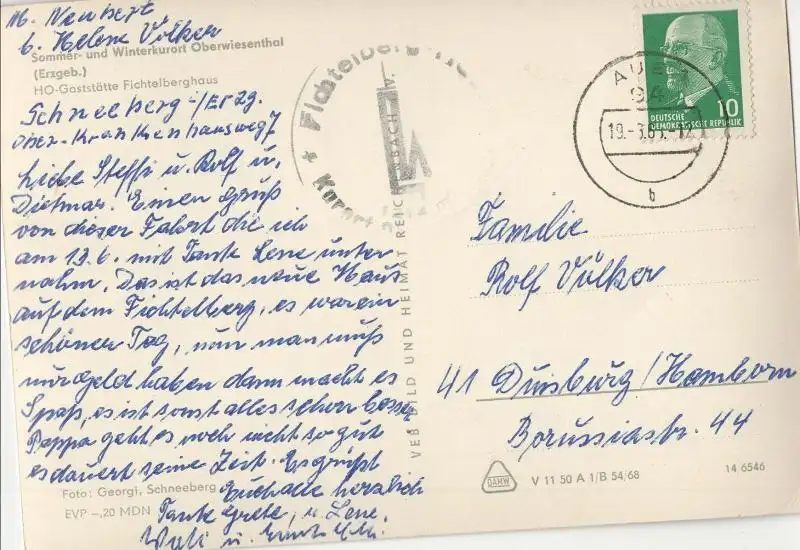 M. Neubert
b. Helene Völker
Sommer- und Winterkurort Oberwiesenthal
(Erzgeb.)
HO-Gaststätte Fichtelberghaus
Schneeberg i/Erzg.
Ober-Krankenhausweg 7
Liebe Steffi u. Rolf u.
Dietmar. Einen Gruß
von dieser Fahrt die ich
am 12.6. mit Tante Lene unter
nahm. Das ist das neue Haus
auf dem Fichtelberg, es war ein
schöner Tag, nur man muß
nur Geld haben dann macht es
Spaß, es ist sonst alles schon besser,
Pappa geht es noch nicht so gut
es dauert seine Zeit. Es grüßt
Euch alle herzlich
Tante Grete, u. Lene.
u.
Foto: Georgi, Schneeberg
EVP -,20 MDN
Fichtelberg
Kurort
VEB BILD UND HEIMAT REICHENBACH i. V.
AUE
94
19.-3.6
b
10
DEUTSCHE
DEMOKRATISCHE REPUBLIK
Familie
Rolf Völker
41 Duisburg/Hamborn
Borussiastr. 44
DAMW
V 11 50 A 1/B 54/68
14 6546